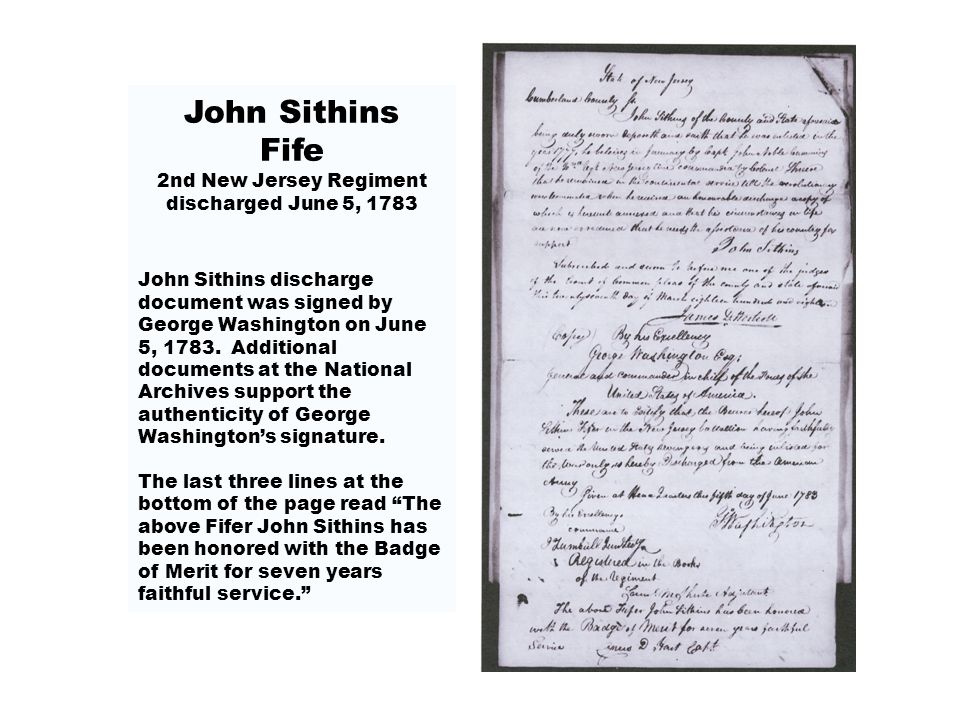 John Sithins
Fife
2nd New Jersey Regiment
discharged June 5, 1783
John Sithins discharge
document was signed by
George Washington on June
5, 1783. Additional
documents at the National
Archives support the
authenticity of George
Washington’s signature.
The last three lines at the
bottom of the page read “The
above Fifer John Sithins has
been honored with the Badge
of Merit for seven years
faithful service.”
State of New Jersey
Cumberland County Ss.
John Sithins of the County and State aforesaid
being duly sworn deposeth and saith that he was enlisted in the
year 1777, he believes in January by Capt John Noble Cumming
of the Regt New Jersey line commanded by Colonel Shreve
that he remained in the continental service till the revolutionary
war terminated when he received an honourable discharge a copy of
which is hereunto annexed and that his circumstances in life
are now so reduced that he needs the assistance of his country for
support
John Sithins
Subscribed and sworn to before me one of the judges
of the Court of Common pleas of the county and state aforesaid
this twentyseventh day of March eighteen hundred and eighteen
James
(Copy) By his Excellency
George Washington Esq;
General and commander in chief of the Forces of the
United States of America.
These are to certify that the Bearer hereof John
Sithins Fifer in the New Jersey battallion having faithfully
served the United States and being enlisted for
the War only is hereby Discharged from the American
Army
Given at Head Quarters the fifth day of June 1783
By his Excellency's
command
G Washington
J Trumbull Jun
Registered in the Books
of the Regiment
Adjutant
The above Fifer John Sithins has been honored
with the Badge of Merit for seven years faithful
Service D Hart Capt.